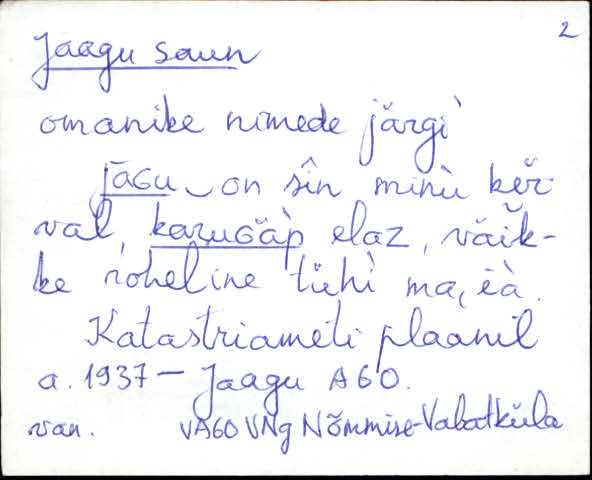 2
Jaagu saun
omanike nimede järgi
jāGu on sîn minù kĕr
val, kazuGäp elaz, väik-
ke roheline tühì ma,
Katastriameti plaanil
a. 1937 – Jaagu A60.
van. VA60 VNg Nõmmise-Vabatküla